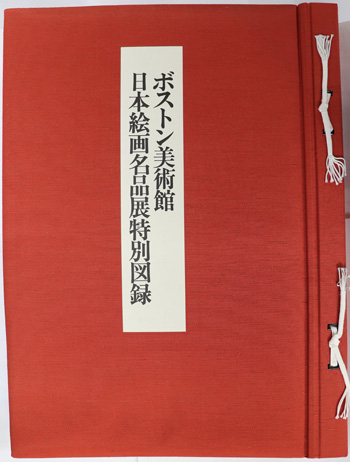 ボストン美術館
日本絵画名品展特別図録